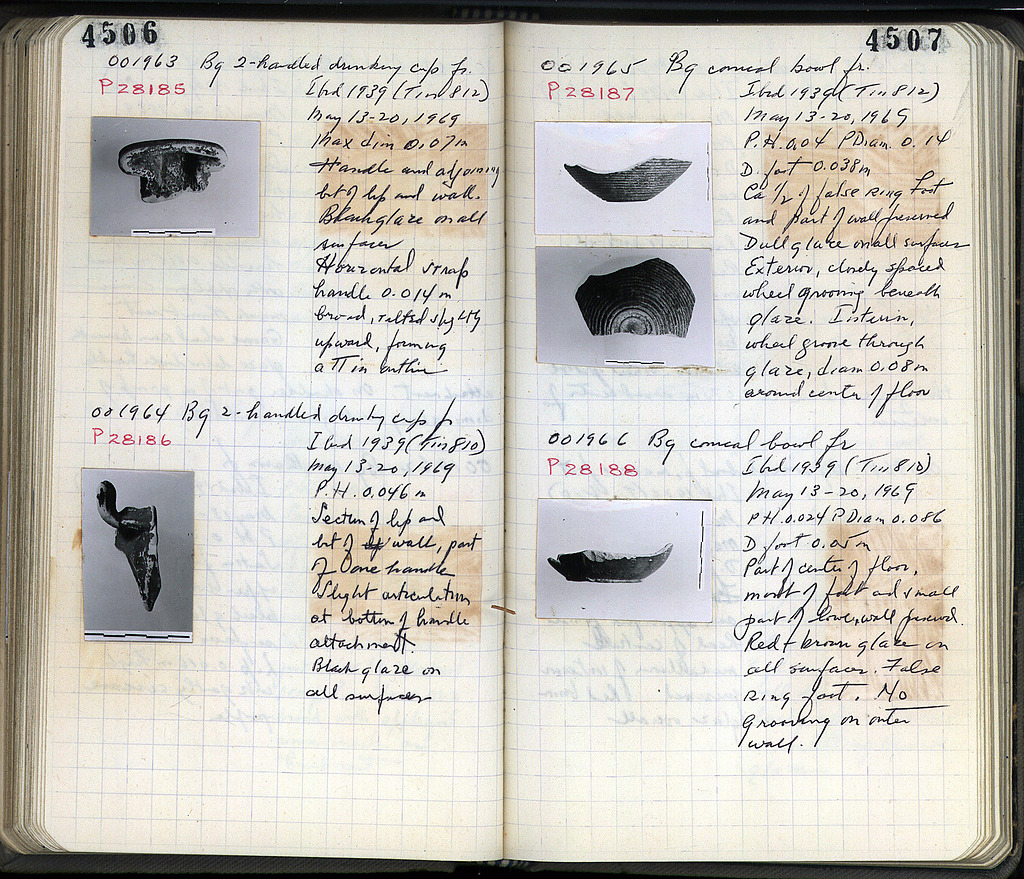 4506
001963 Bg 2-handled drinking cup fr.
P28185
Ibid 1939 (Tin 812)
May 13-20, 1969
Max dim 0.07m
Handle and adjoining
bt of lip and wall.
Black glaze on all
surfaces
Horizontal strap
handle 0.014 m
broad, tilted slightly
upward, forming
a Π in outline
001964 Bg 2-handled drinking cup fr
P28186
Ibid 1939 (Tin 810)
May 13-20, 1969
P.H. 0.046 m
Section of lip and
bt of wall, part
of one handle
Slight articulation
at bottom of handle
attachment.
Black glaze on
all surfaces
4507
001965 Bg conical bowl fr.
P28187
Ibid 1939 (Tin 812)
May 13-20, 1969
P.H. 0.04 P Diam. 0.14
D. foot 0.038m
Ca 1/2 of false ring foot
and part of wall preserved
Dull glaze on all surfaces
Exterior, closely spaced
wheel grooving beneath
glaze. Interior,
wheel groove through
glaze, diam 0.08m
around center of floor
001966 Bg conical bowl fr
P28188
Ibid 1939 (Tin 810)
May 13-20, 1969
P.H. 0.024 P Diam 0.086
D foot 0.05m
Part of center of floor,
most of foot and small
part of lower wall preserved.
Red + brown glaze on
all surfaces. False
ring foot. No
grooving on outer
wall.